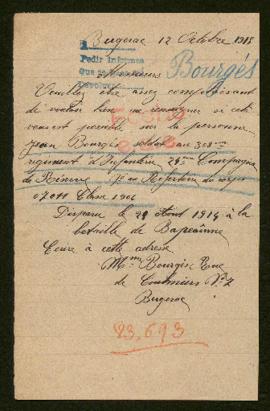 Bergerac 12 Octobre 1915
Pedir informes
Que
Devolver
Monsieur
Bourgés
Veuillez être assez complaisant
de vouloir bien me renseigner si cela
vennant possible sur la personne
Jean Bourgés soldat au 308me
regiment d'Infanterie 29me Compagnie
de Réserve No au Repertoire du corps
07011 Classe 1906
Disparu le 29 Aout 1914 à la
bataille de Bapeaunne
Ecrire à cette adresse
Mme Bourgés Rue
de Coulmiers No 7
Bergerac
23,693